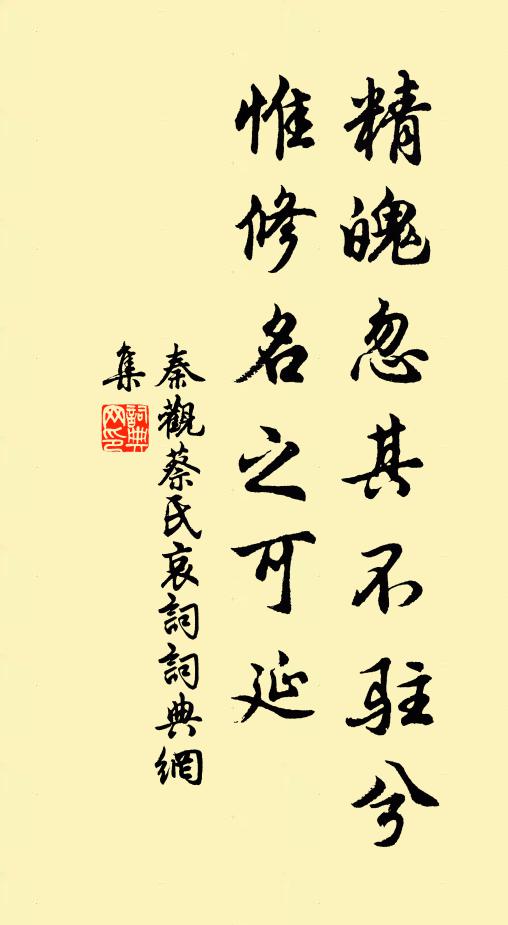 精魄忽其不駐兮
惟修名之可延
秦觀蔡氏哀詞詞典網
集
詞典
网印